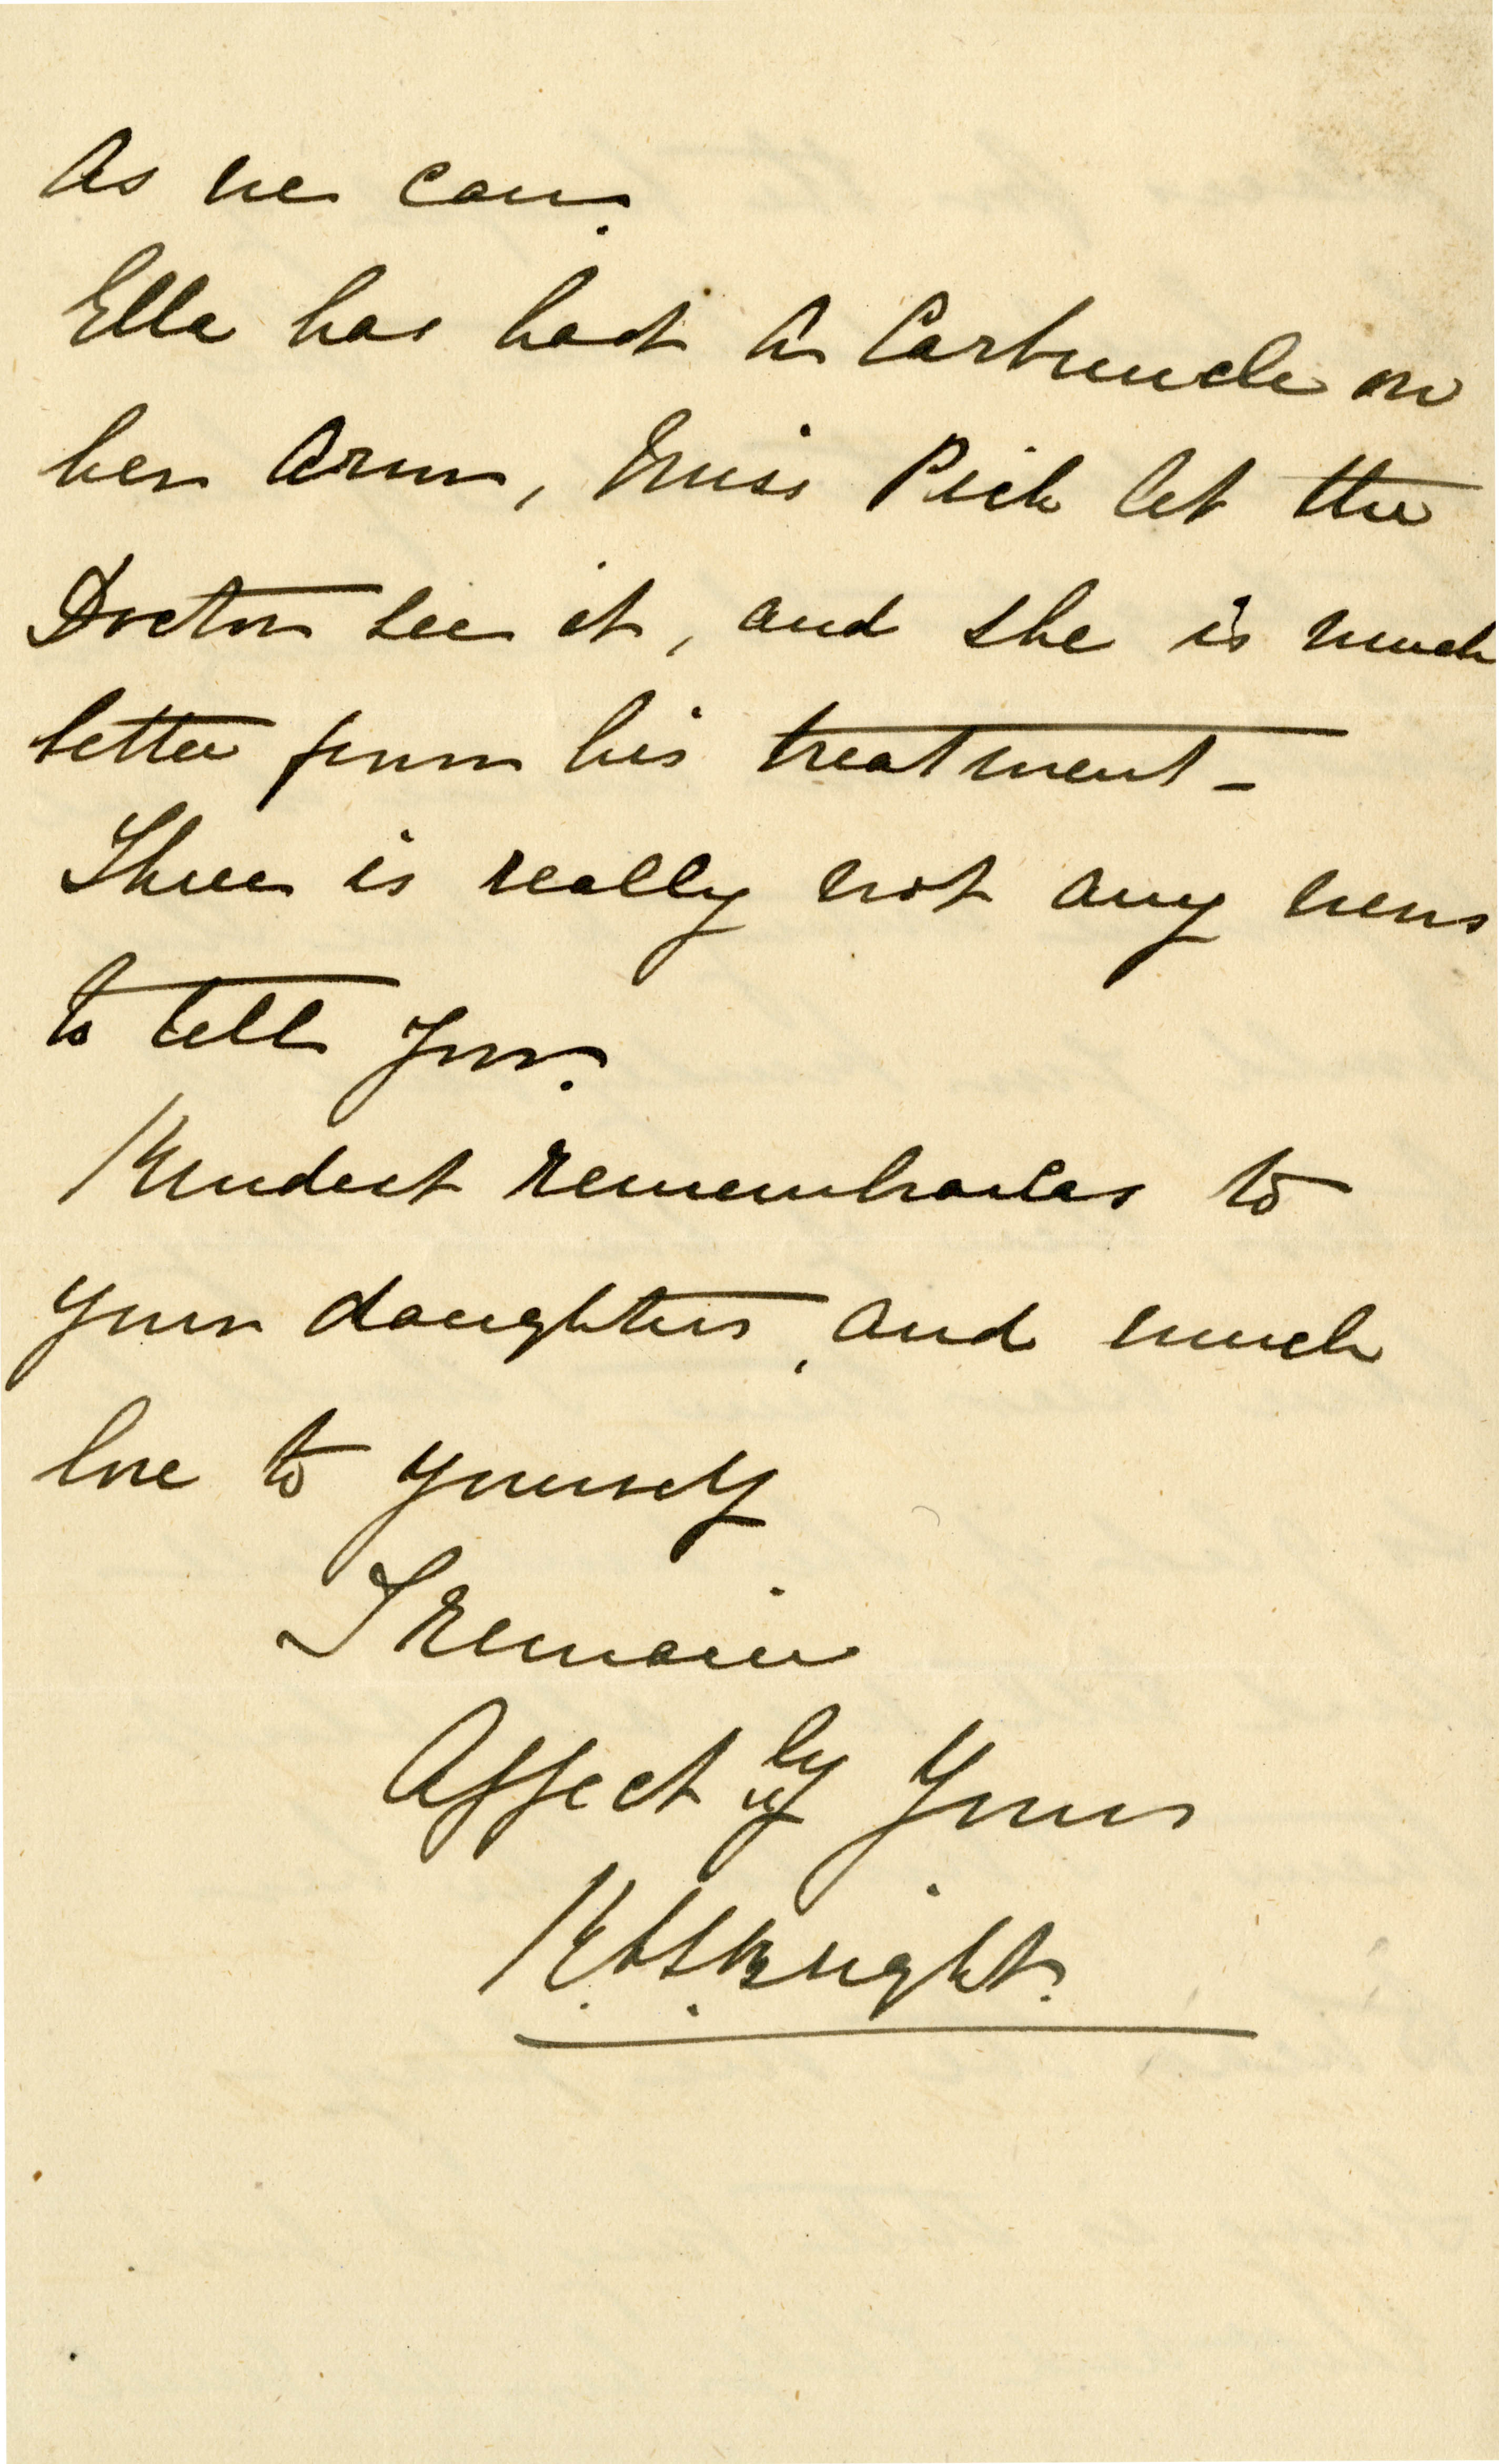 As we can.
Ella has had a Carbuncle on
her Arm, Miss Pick let the
Doctor see it, and she is much
better from his treatment -
There is really not any news
to tell you.
Kindest remembrances to
your daughters, and much
love to yourself
I remain
Affectly Yours
Knight.